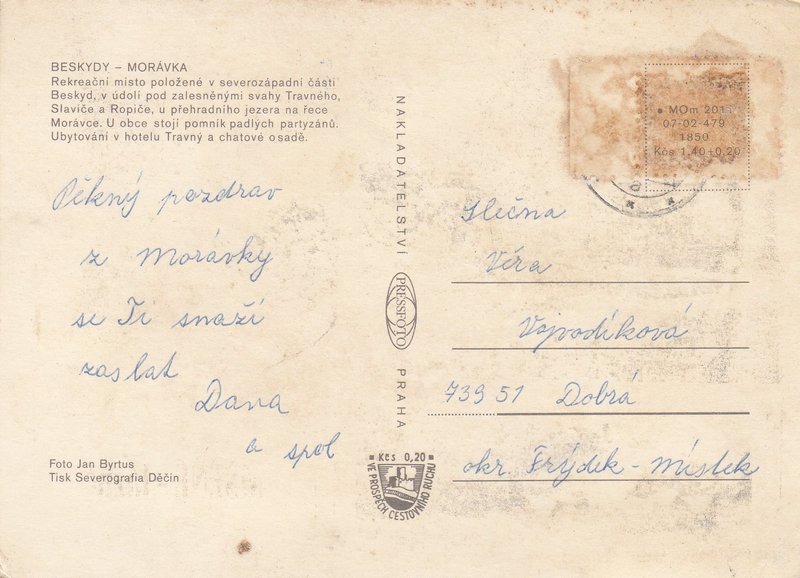 BESKYDY – MORÁVKA
Rekreační místo položené v severozápadní části
Beskyd, v údolí pod zalesněnými svahy Travného,
Slavíče a Ropiče, u přehradního jezera na řece
Morávce. U obce stojí pomník padlých partyzánů.
Ubytování v hotelu Travný a chatové osadě.
Pěkný pozdrav
z Morávky
se Ti snaží
zaslat
Dana
a spol
Foto Jan Byrtus
Tisk Severografia Děčín
NAKLADATELSTVÍ
PRESSFOTO
PRAHA
Kčs 0,20
VE PROSPĚCH CESTOVNÍHO RUCHU
MOm 201
07-02-479
1850
Kčs 1,40+0,20
Slečna
Věra
Vojvodíková
739 51 Dobrá
okr. Frýdek-Místek